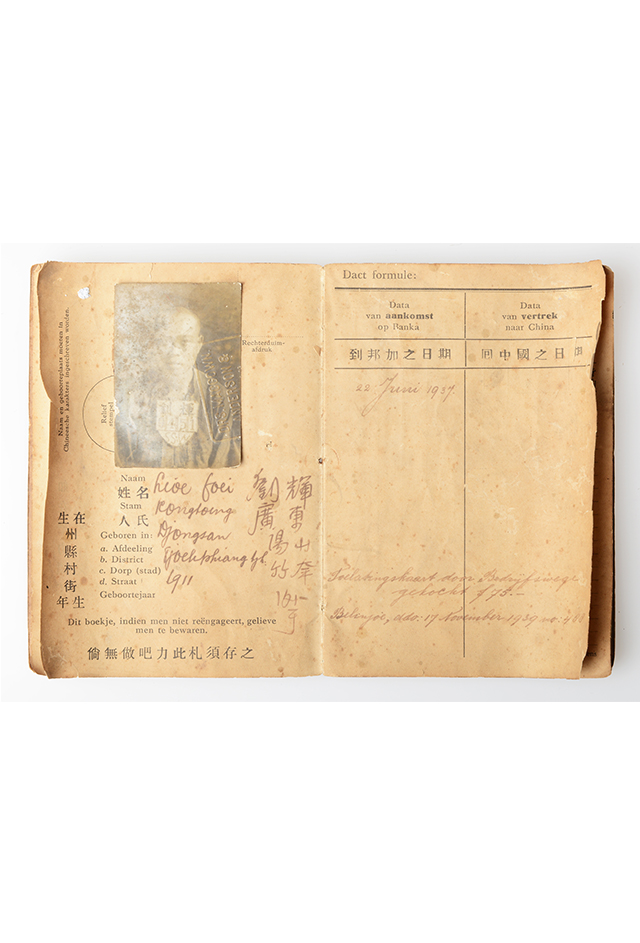 Naam en geboorteplaats moeten in
Chineesche karakters ingeschreven worden.
Relief
stempel
Rechterduim-
afdruk
Naam
姓名
Lioe Foei
Stam
人氏
Kongtoeng
Geboren in:
Djongsan
a. Afdeeling
b. District
c. Dorp (stad)
d. Straat
Geboortejaar
1911
在
生州縣村街年
生
劉 輝
廣東
陽山
竹
Dit boekje, indien men niet reëngageert, gelieve
men te bewaren.
倘無做吧力此札須存之
Dact formule:
Data
van aankomst
op Banka
到邦加之日期
22 Juni 1937.
Data
van vertrek
naar China
回中國之日
door Bedrijf
gekocht f 75.-
Belinjoe, ddo. 17 November 1939 no: